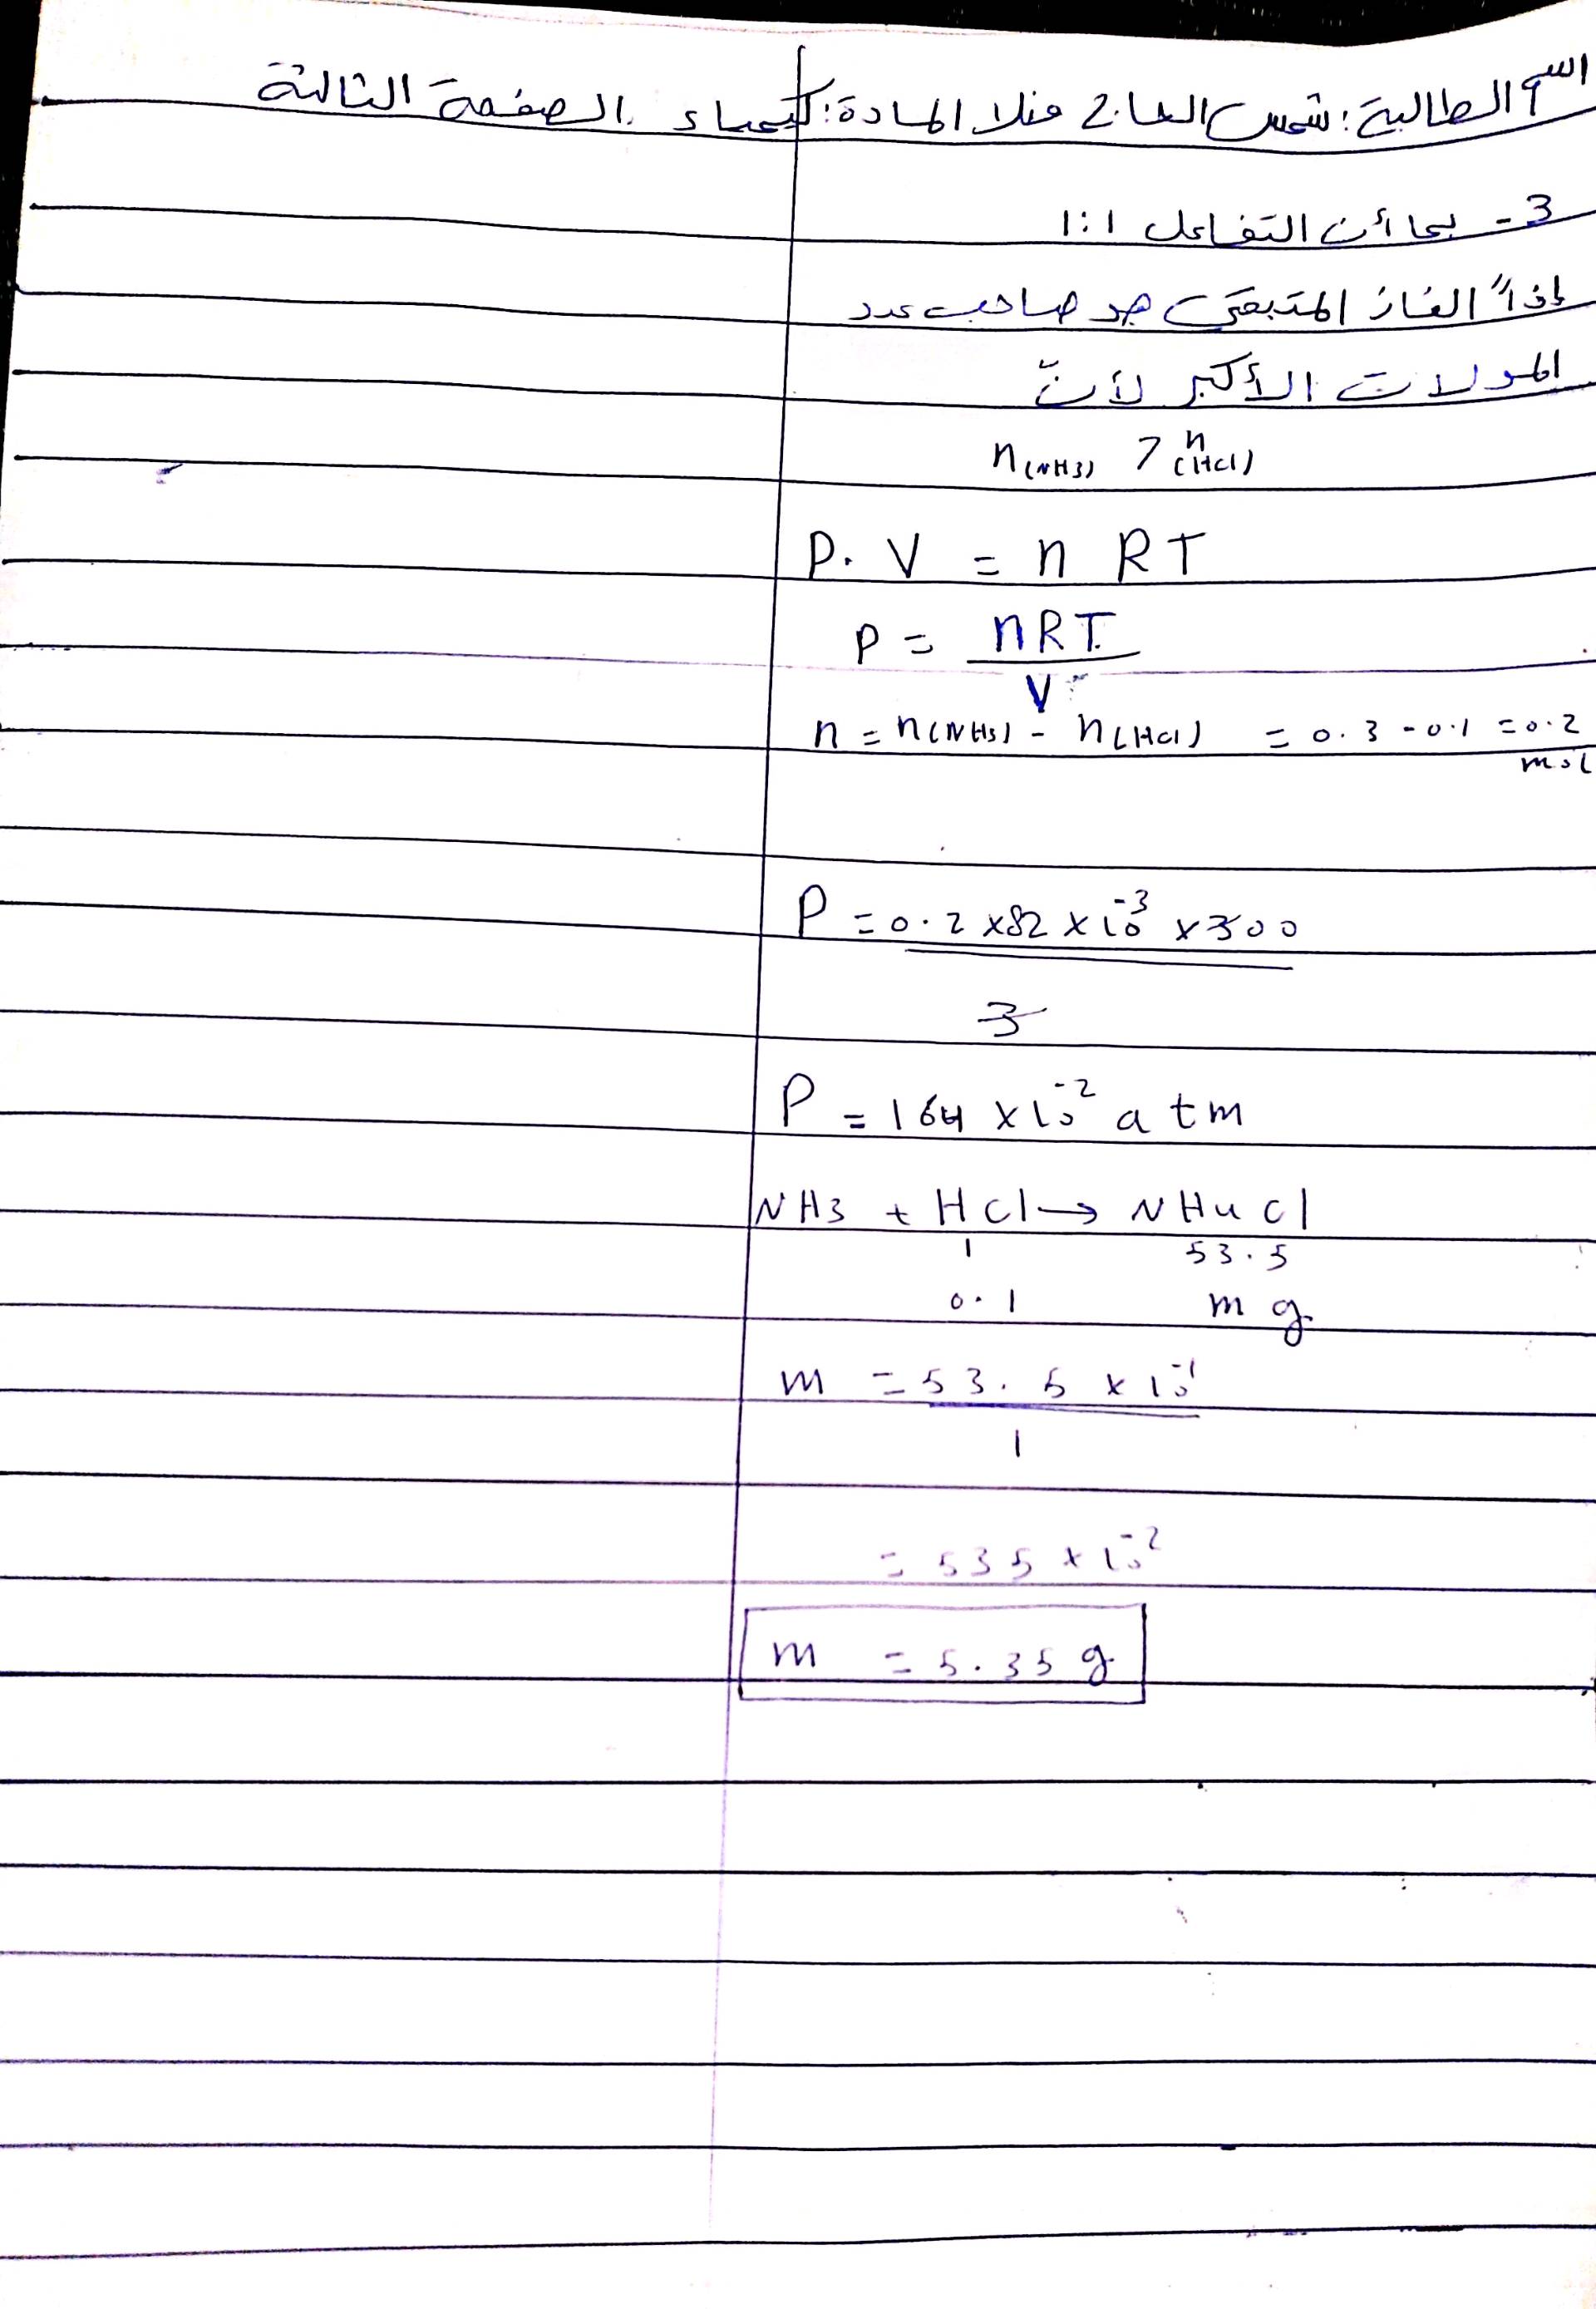 اسم الطالبة: شمس الحاج منلا المادة: كيمياء الصفحة الثالثة
3- بما أن التفاعل 1:1
إذاً الغاز المتبقي هو صاحب عدد
المولات الأكبر لأنّ
n(NH3) > n(HCl)
P. V = n RT
P = nRT / V
n = n(NH3) - n(HCl) = 0.3 - 0.1 = 0.2 mol
P = 0.2 x 82 x 10^-3 x 300 / 3
P = 164 x 10^-2 atm
NH3 + HCl → NH4Cl
1 53.5
0.1 m g
m = 53.5 x 10^-1 / 1
= 535 x 10^-2
m = 5.35 g